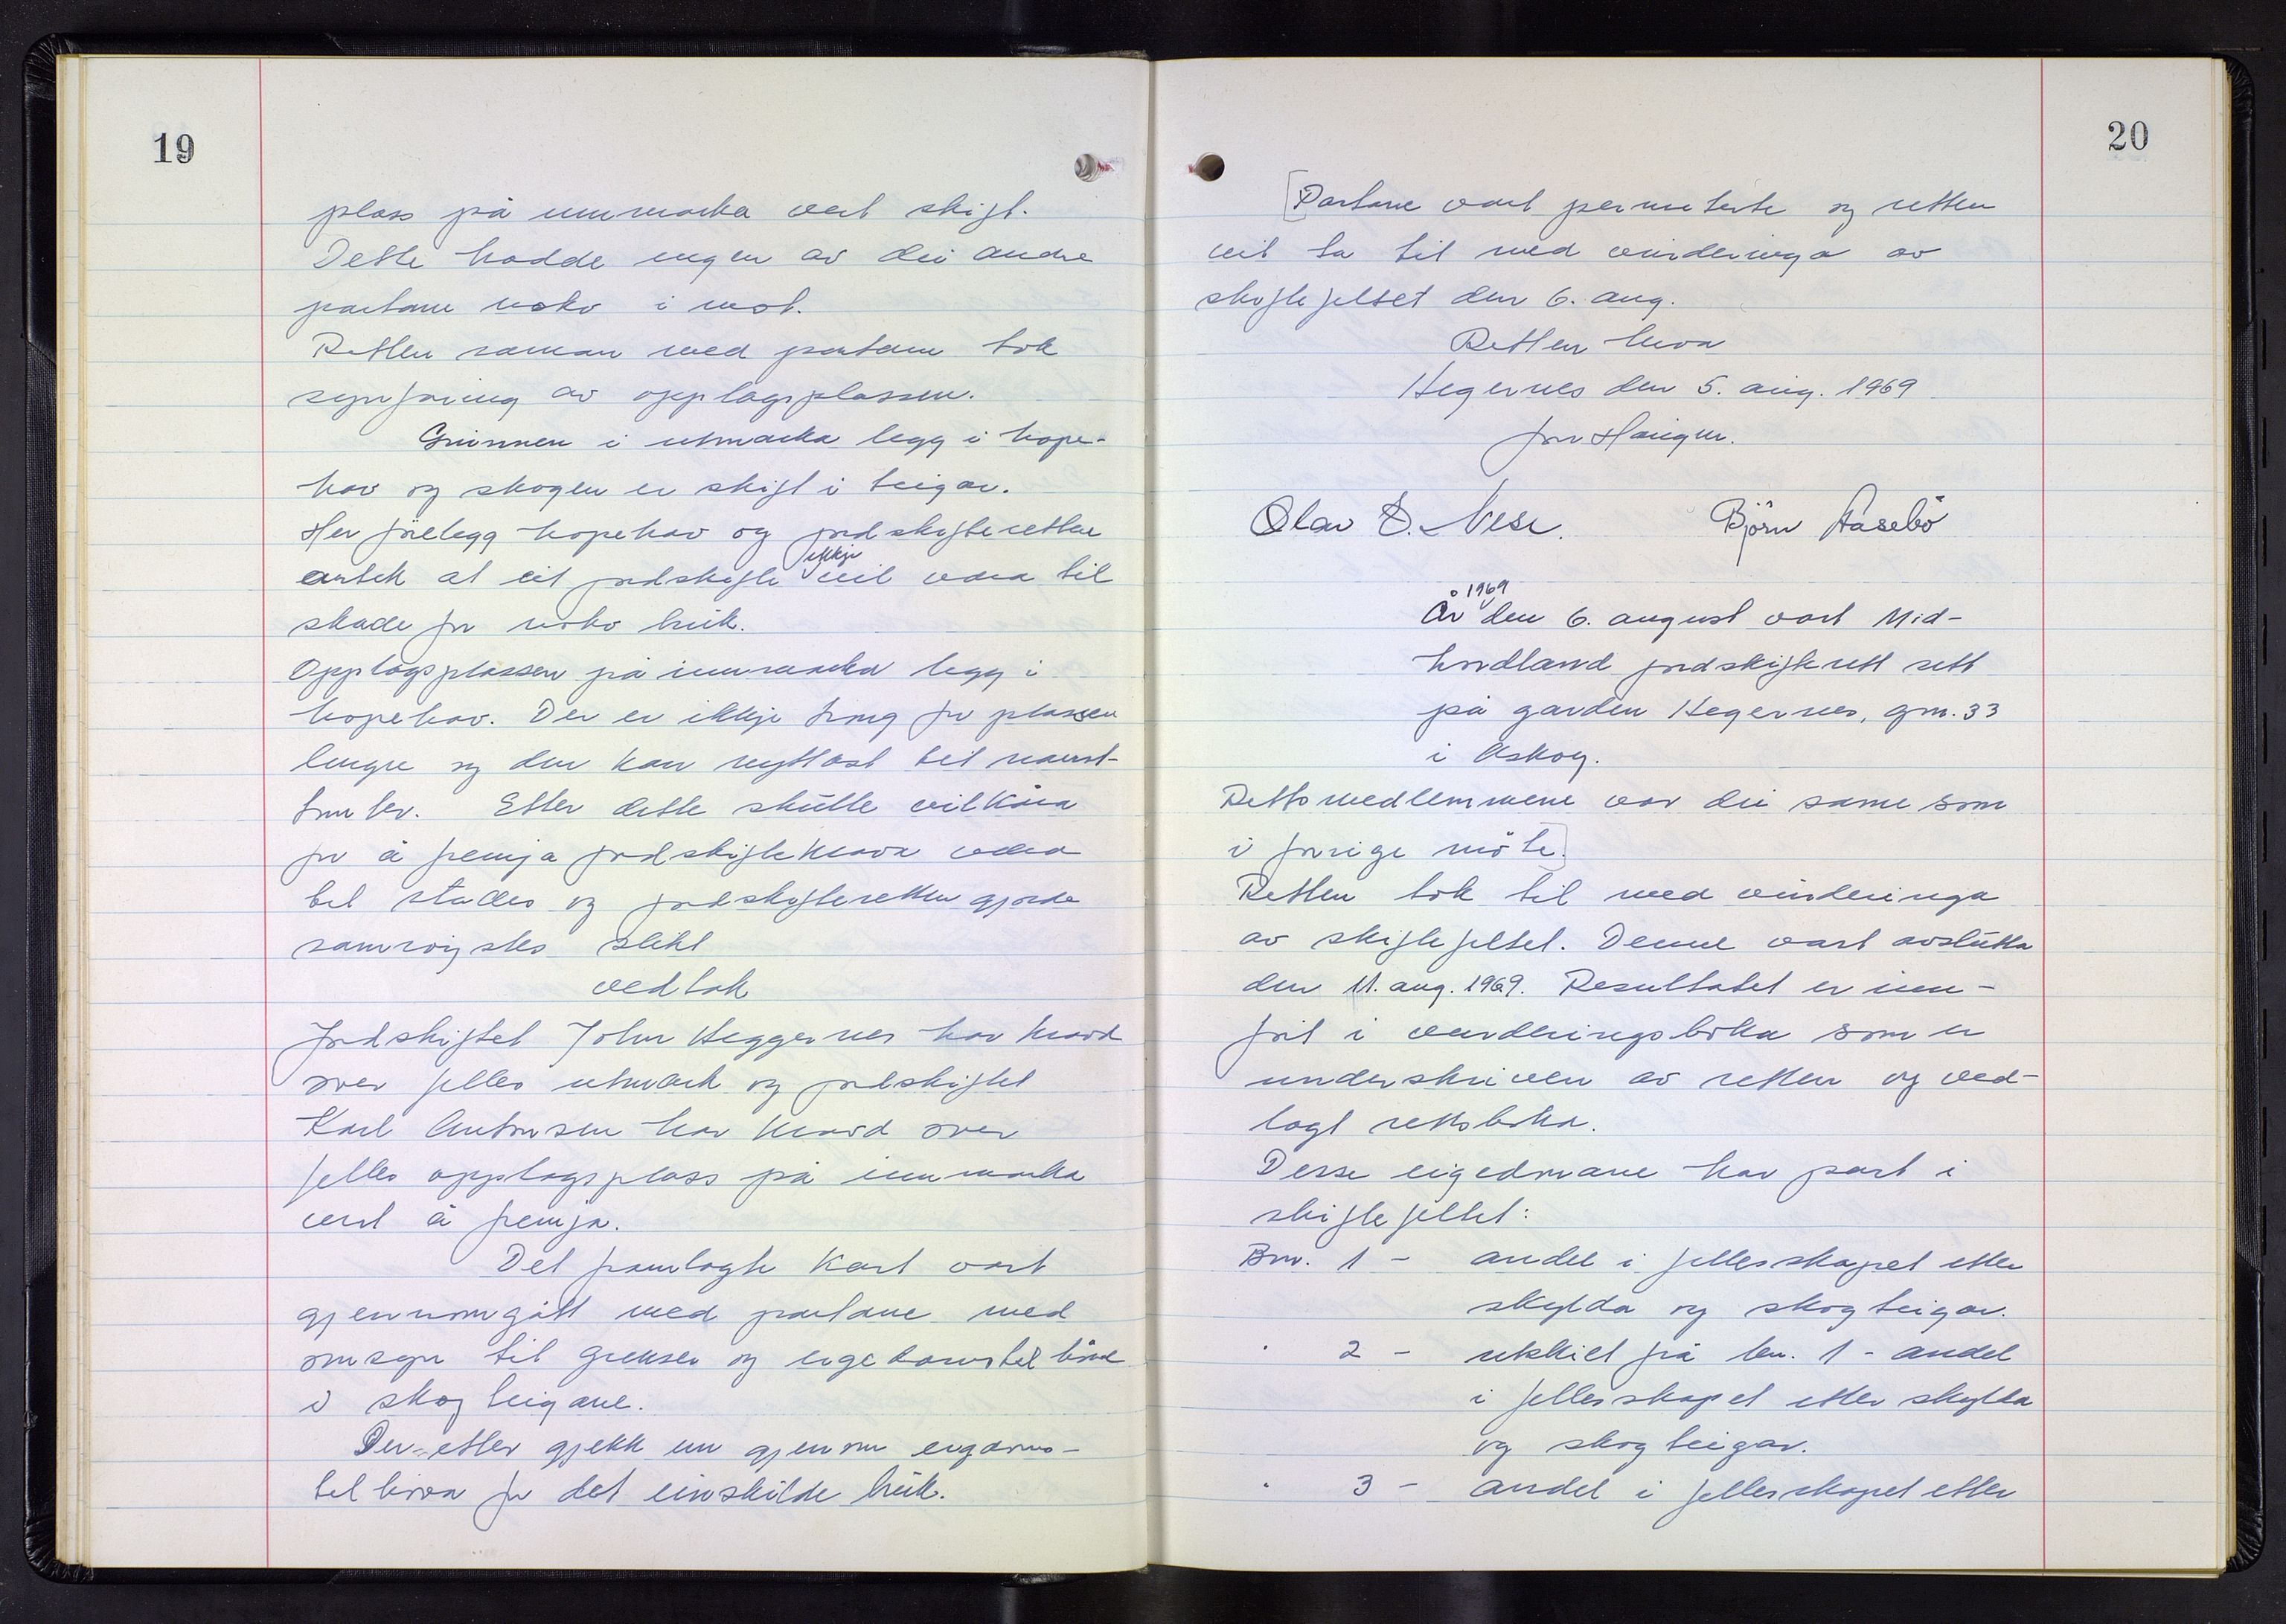 19
plass på innmarka vert skift.
Dette hadde ingen av dei andre
partane noko i mot.
Retten saman med partane tok
synfaring av opplagsplassen.
Grunnen i utmarka ligg i hope-
hav og skogen er skift i teigar.
Her föreligg hopehav og jordskifteretten
antek at eit jordskifte ikkje vil væra til
skade for noko bruk.
Opplagsplassen på innmarka ligg i
hopehav. Der er ikkje trong for plassen
lengre og den kan nyttast til naust-
tomter. Etter dette skulle vilkåra
for å fremja jordskiftekrava væra
til stades og jordskifteretten gjorde
samröystes slikt
vedtak
Jordskiftet John Heggernes har kravd
over felles utmark og jordskiftet
Karl Antonsen har kravd over
felles opplagsplass på innmarka
vert å fremja.
Det framlagte kart vart
gjennomgått med partane med
omsyn til grenser og eigedomstilhöve
i skogteigane.
Der-etter gjekk ein gjenom eigdoms-
tilhöva for det einskilde bruk.
20
[Partane vart permiterte og retten
vil ta til med vurderinga av
skiftefeltet den 6. aug.
Retten heva
Hegernes den 5. aug. 1969
Jon Haugen.
Olav E. Nese. Björn Aasebö
År 1969 den 6. august vart Mid-
hordland jordskifterett sett
på garden Hegernes, gnr. 33
i Askøy.
Rettsmedlemmene var dei same som
i forrige möte.]
Retten tok til med vurderinga
av skiftefeltet. Denne vart avslutta
den 11. aug. 1969. Resultatet er inn-
fört i vurderingsboka som er
underskriven av retten og ved-
lagt rettsboka.
Desse eigedomane har part i
skiftefeltet:
Bnr. 1 - andel i fellesskapet etter
skylda og skogteigar.
" 2 - utskilt frå bnr. 1 - andel
i fellesskapet etter skylda
og skogteigar.
" 3 - andel i fellesskapet etter